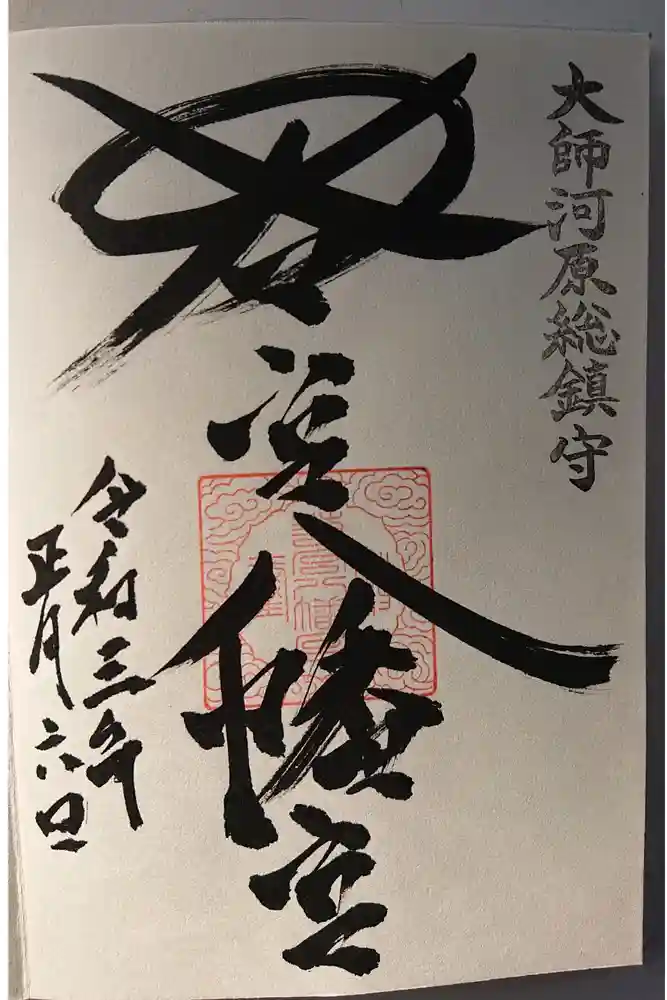 大師河原総鎮守
若宮八幡宮
令和三年
正月六日